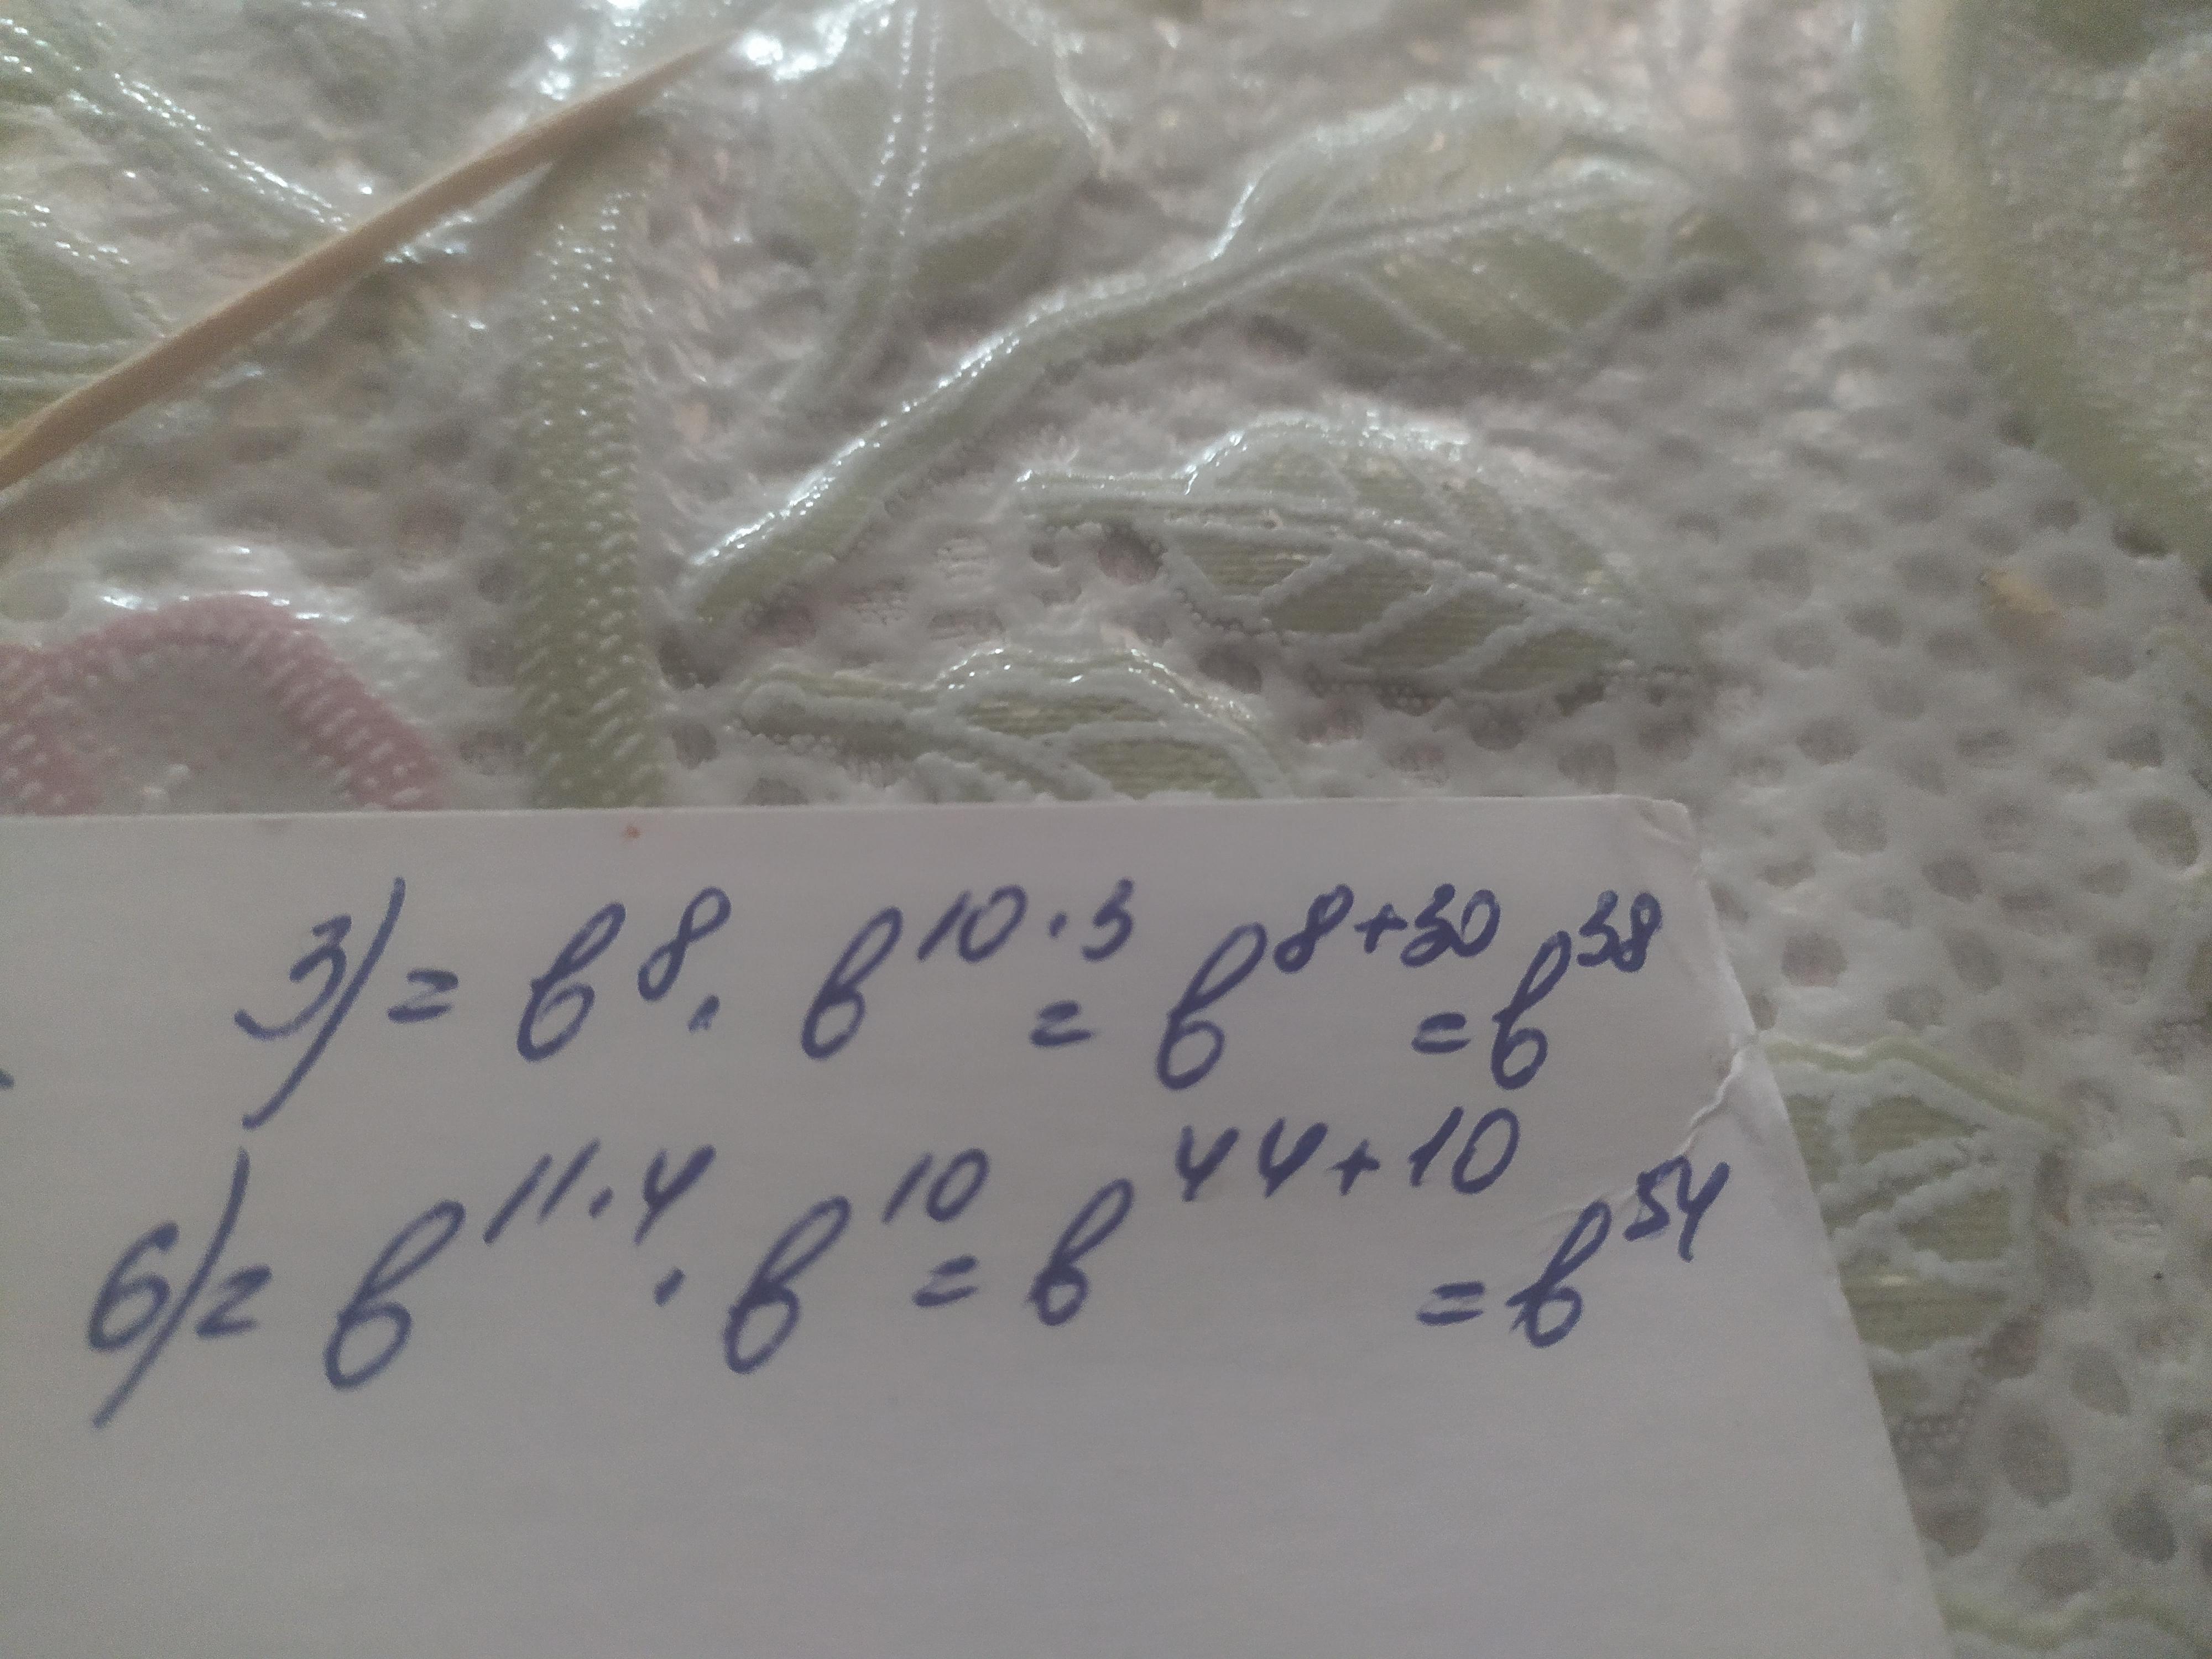 3) = b⁸ · b¹⁰·³ = b⁸⁺³⁰ = b³⁸
6) = b¹¹·⁴ · b¹⁰ = b⁴⁴⁺¹⁰ = b⁵⁴